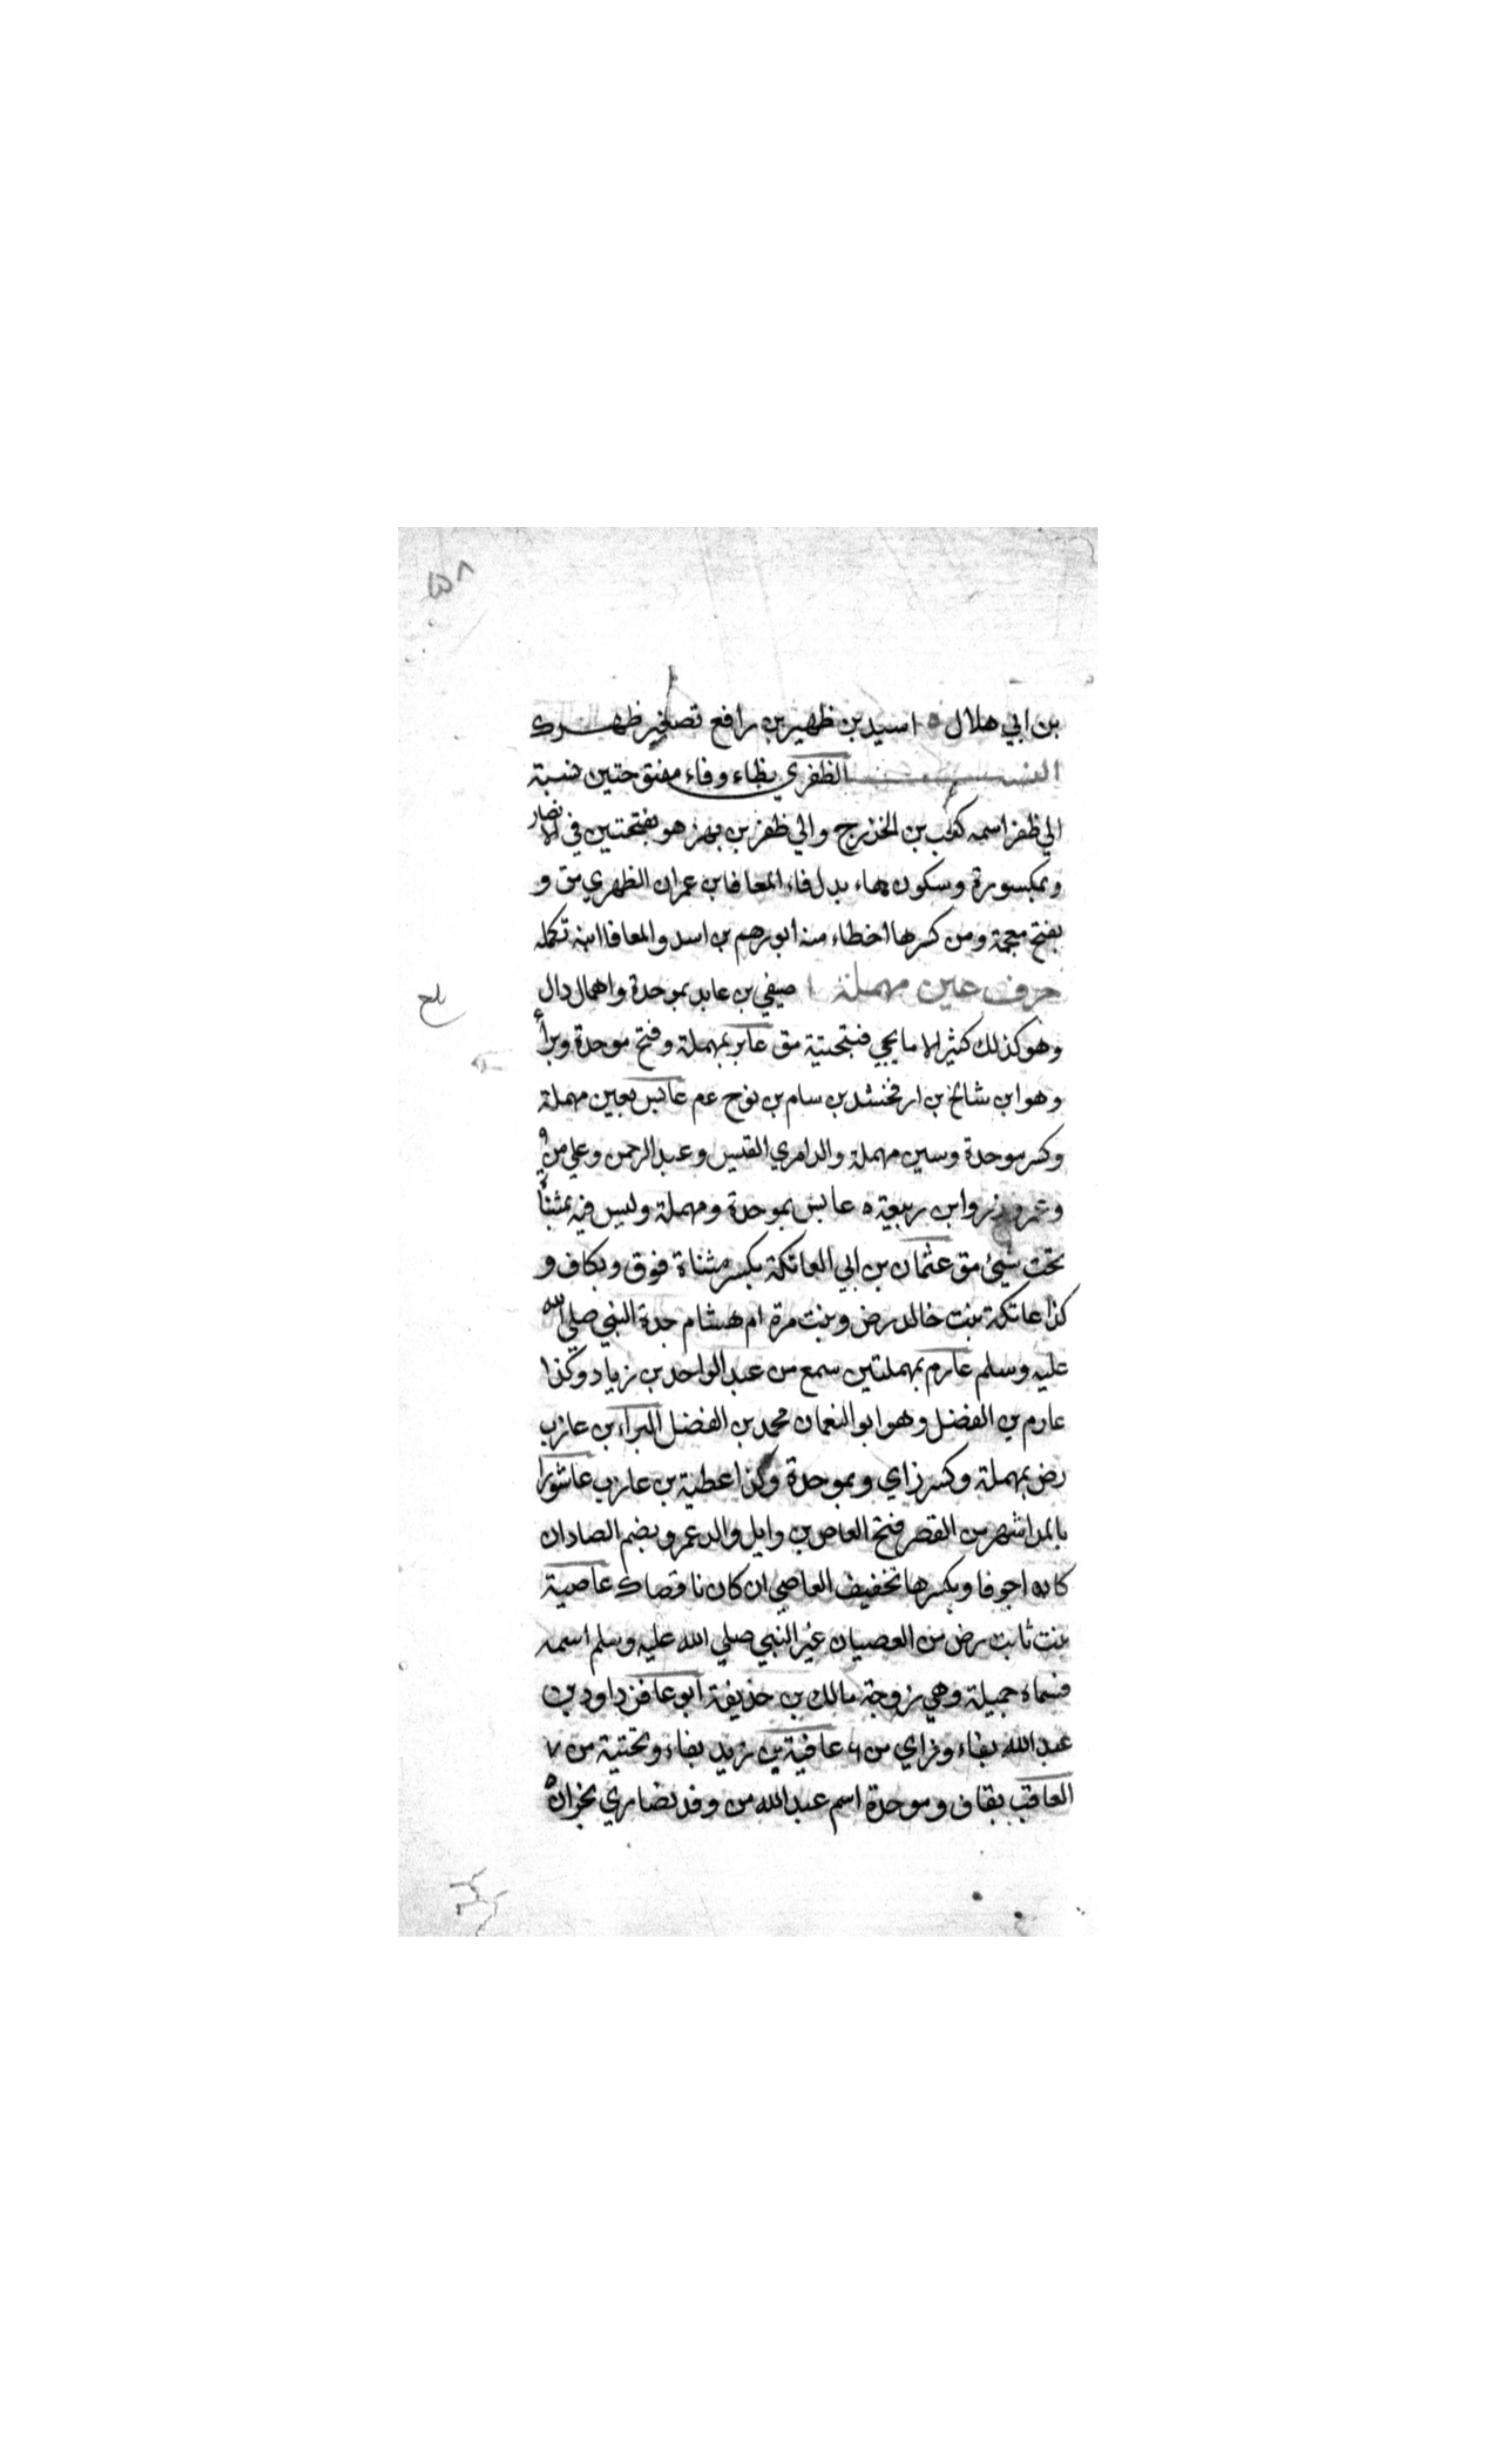 بن ابي هلال ه اسيد بن ظهير بن رافع تصغير ظهر ك
النسب الظفري بظاء وفاء مفتوحتين نسبة
الي ظفر اسمه كعب بن الخزرج والي ظفر بن بهز هو بفتحتين في الانصار
وبمكسورة وسكون هاء بدل فاء المعافا بن عمران الظهري مق و
بفتح معجمة ومن كسرها اخطاء منه ابو رهم بن اسد والمعافا ابنه تكمله
حرف عين مهملة صيفي بن عابد بموحدة واهمال دال
وهو كذلك كثير الا ما يجي فبتحتية مق عابر بمهملة وفتح موحدة وبراء
وهو ابن شالخ بن ارفخشد بن سام بن نوح عم عابس بعين مهملة
وكسر موحدة وسين مهملة والد امري القيس وعبد الرحمن وعلي من
وابن ربيعة ه عابس بموحدة ومهملة وليس فيه بمثناة
تحت شيئ مق عثمان بن ابي العاتكة بكسر مثناة فوق وبكاف و
كذا عاتكة بنت خالد رض وبنت مرة ام هشام جدة النبي صلي الله
عليه وسلم عارم بمهملتين سمع من عبد الواحد بن زياد وكذا
عارم بن الفضل وهو ابو النعمان محمد بن الفضل البراء بن عازب
رض بمهملة وكسر زاي وبموحدة وكذا عطية بن عازب عاشورا
بالمد اشهر من القصر فتح العاص بن وايل والد عمرو بضم الصاد ان
كان اجوفا وبكسرها تخفيف العاصي ان كان ناقصا ك عاصية
بنت ثابت رض من العصيان غير النبي صلي الله عليه وسلم اسمه
فسماه جميلة وهي زوجة مالك بن حذيفة ابو عافز داود بن
عبد الله بفاء وزاي من ٦ عافية بن زيد بفاء وتحتية من ٧
العاقب بقاف وموحدة اسم عبد الله من وفد نصاري نجران